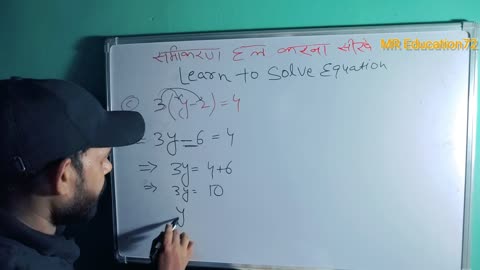 MR Education72
समीकरण हल करना सीखे
Learn to Solve Equation
(c) 3(y-2)=4
= 3y-6 = 4
⇒ 3y= 4+6
⇒ 3y= 10
y